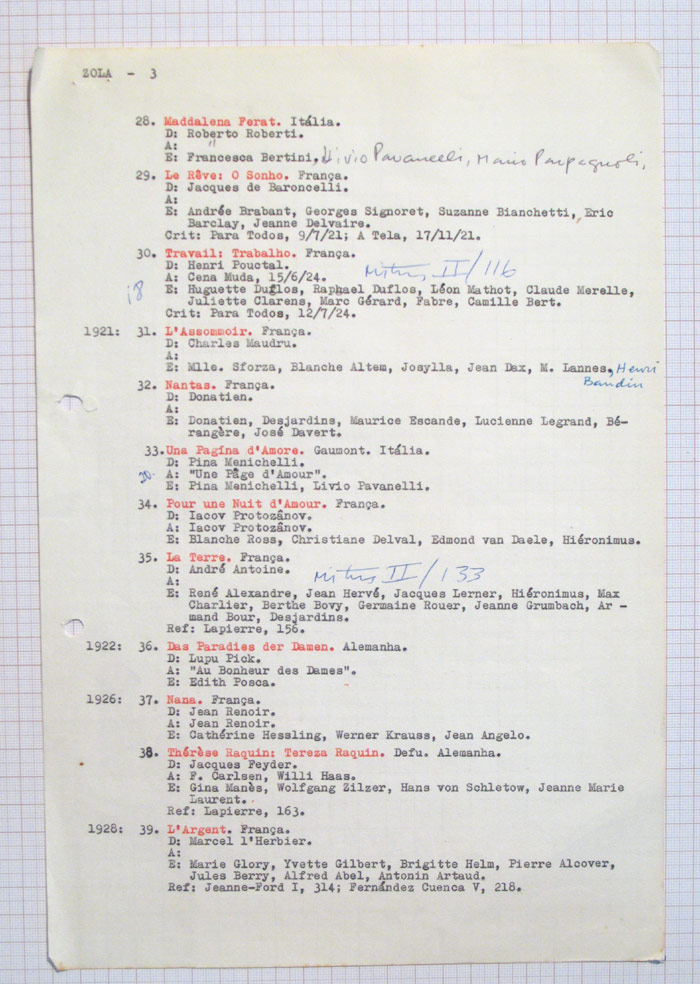 ZOLA - 3
28. Maddalena Ferat. Itália.
D: Roberto Roberti.
A: "
E: Francesca Bertini, Livio Pavanelli, Mario Parpagnoli,
29. Le Rêve: O Sonho. França.
D: Jacques de Baroncelli.
A:
E: Andrée Brabant, Georges Signoret, Suzanne Bianchetti, Eric
Barclay, Jeanne Delvaire.
Crit: Para Todos, 9/7/21; A Tela, 17/11/21.
30. Travail: Trabalho. França.
D: Henri Pouctal.
A: Cena Muda, 15/6/24. Mitry II/116
18 E: Huguette Duflos, Raphael Duflos, Léon Mathot, Claude Merelle,
Juliette Clarens, Marc Gérard, Fabre, Camille Bert.
Crit: Para Todos, 12/7/24.
1921: 31. L'Assommoir. França.
D: Charles Maudru.
A:
E: Mlle. Sforza, Blanche Altem, Josylla, Jean Dax, M. Lannes, Henri
Baudin
32. Nantas. França.
D: Donatien.
A:
E: Donatien, Desjardins, Maurice Escande, Lucienne Legrand, Bé-
rangère, José Davert.
33. Una Pagina d'Amore. Gaumont. Itália.
D: Pina Menichelli.
20. A: "Une Page d'Amour".
E: Pina Menichelli, Livio Pavanelli.
34. Pour une Nuit d'Amour. França.
D: Iacov Protozânov.
A: Iacov Protozânov.
E: Blanche Ross, Christiane Delval, Edmond van Daele, Hiéronimus.
35. La Terre. França.
D: André Antoine.
A: Mitry II/133
E: René Alexandre, Jean Hervé, Jacques Lerner, Hiéronimus, Max
Charlier, Berthe Bovy, Germaine Rouer, Jeanne Grumbach, Ar -
mand Bour, Desjardins.
Ref: Lapierre, 156.
1922: 36. Das Paradies der Damen. Alemanha.
D: Lupu Pick.
A: "Au Bonheur des Dames".
E: Edith Posca.
1926: 37. Nana. França.
D: Jean Renoir.
A: Jean Renoir.
E: Cathérine Hessling, Werner Krauss, Jean Angelo.
38. Thérèse Raquin: Tereza Raquin. Defu. Alemanha.
D: Jacques Feyder.
A: F. Carlsen, Willi Haas.
E: Gina Manès, Wolfgang Zilzer, Hans von Schletow, Jeanne Marie
Laurent.
Ref: Lapierre, 163.
1928: 39. L'Argent. França.
D: Marcel l'Herbier.
A:
E: Marie Glory, Yvette Gilbert, Brigitte Helm, Pierre Alcover,
Jules Berry, Alfred Abel, Antonin Artaud.
Ref: Jeanne-Ford I, 314; Fernández Cuenca V, 218.